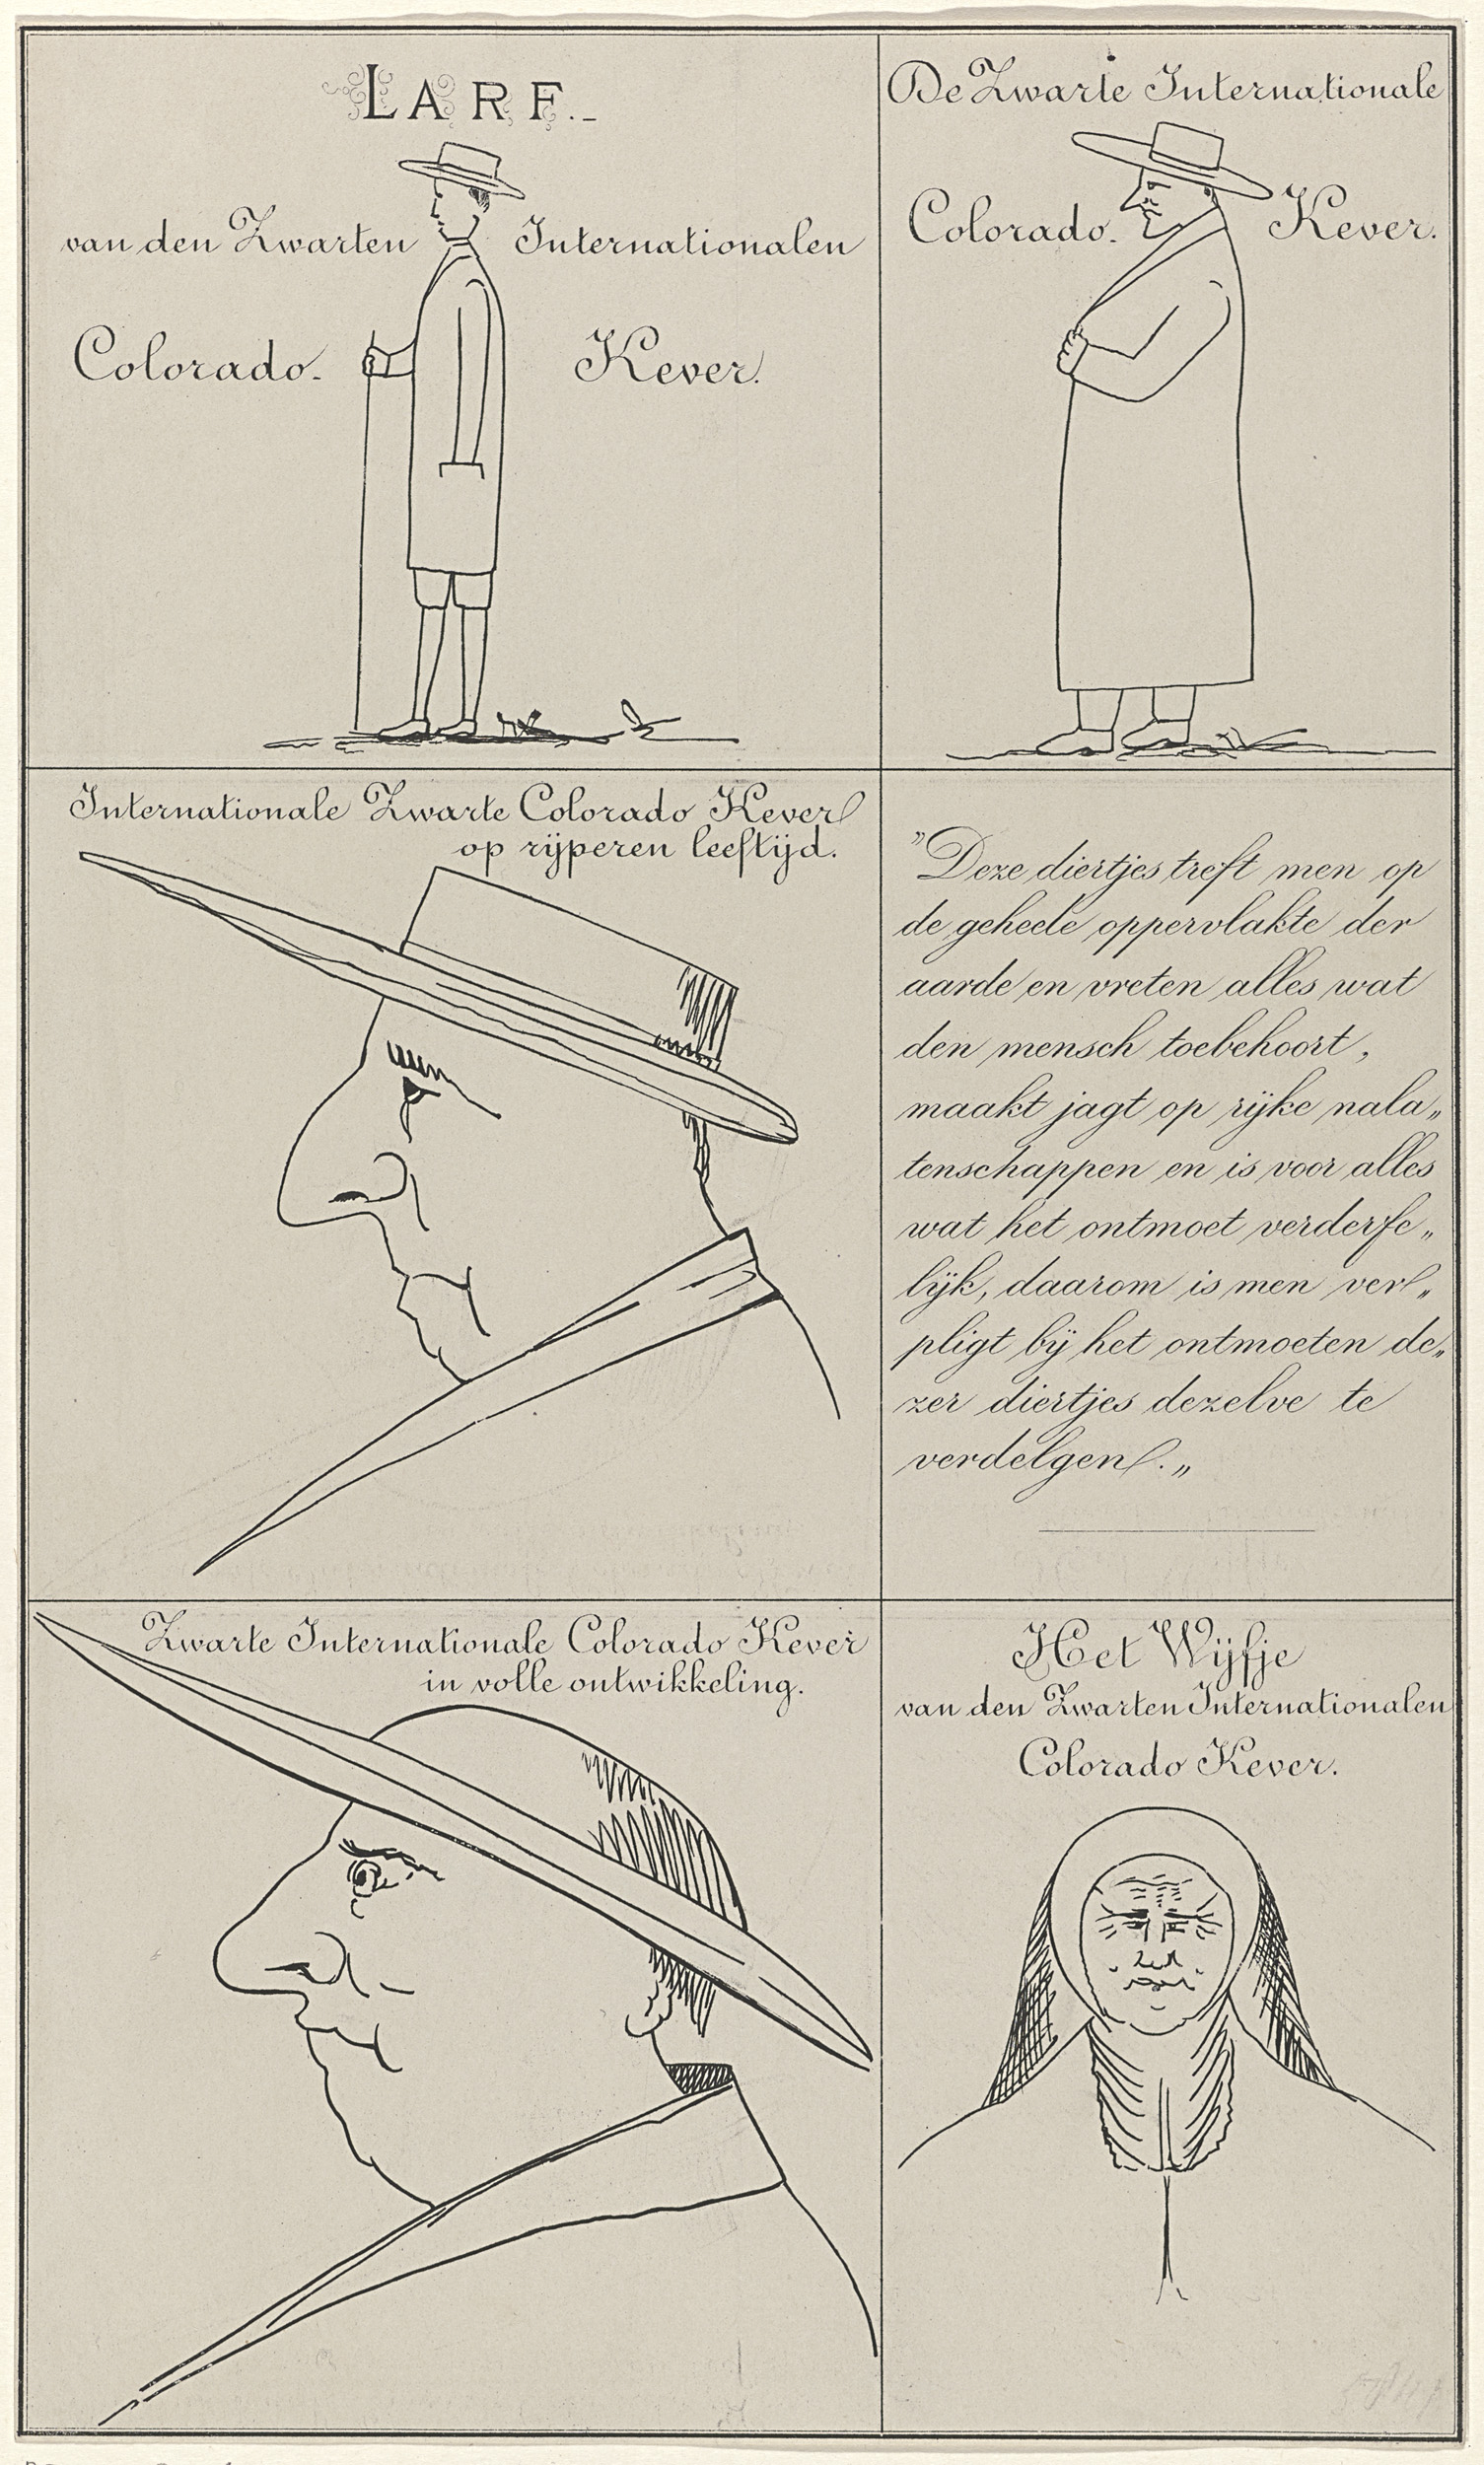 LARF.-
van den Zwarten Internationalen
Colorado- Kever.
De Zwarte Internationale
Colorado- Kever.
Internationale Zwarte Colorado Kever
op rijperen leeftijd.
"Deze diertjes treft men op
de geheele oppervlakte der
aarde en vreten alles wat
den mensch toebehoort,
maakt jagt op rijke nala„
tenschappen en is voor alles
wat het ontmoet verderfe„
lijk, daarom is men ver„
pligt bij het ontmoeten de„
zer diertjes dezelve te
verdelgen.„
Zwarte Internationale Colorado Kever
in volle ontwikkeling.
Het Wijfje
van den Zwarten Internationalen
Colorado Kever.